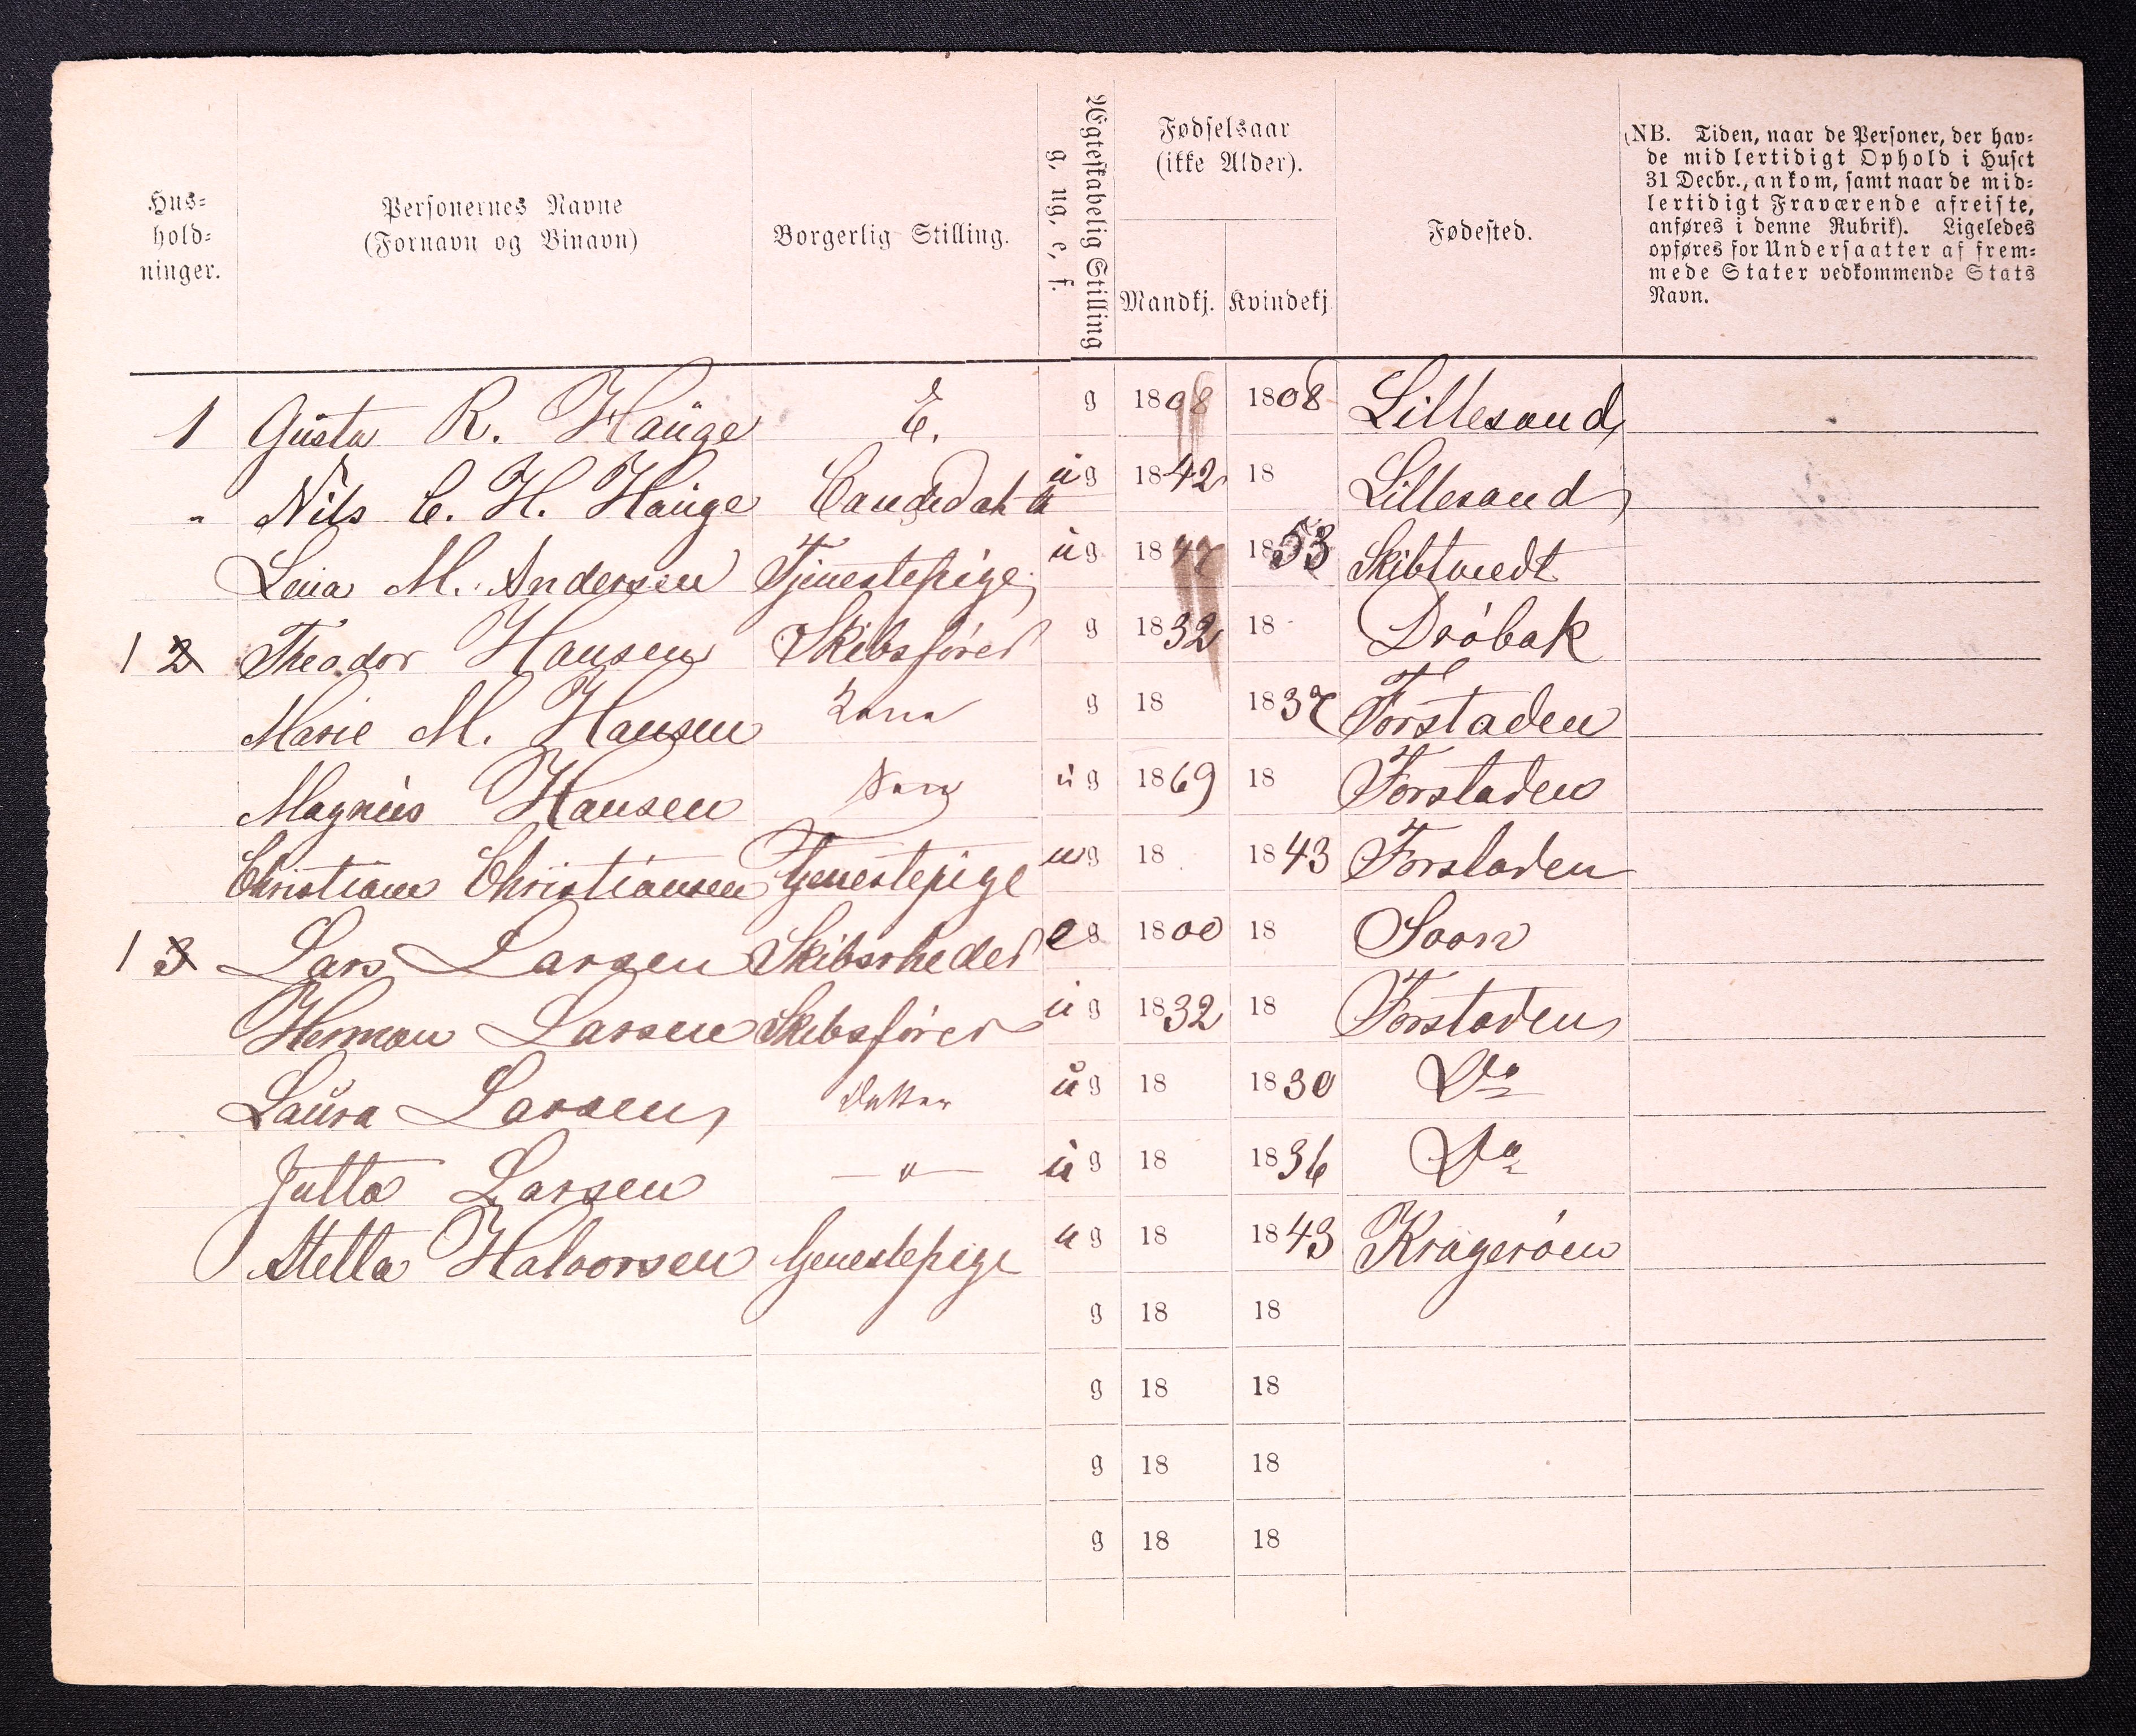 Hus-
hold-
ninger.
Personernes Navne
(Fornavn og Binavn)
Borgerlig Stilling.
Ægteskabelig Stilling
g, ug, e, f.
Fødselsaar
(ikke Alder).
Mandkj. Kvindekj
Fødested.
(NB. Tiden, naar de Personer, der hav-
de midlertidigt Ophold i Huset
31 Decbr., ankom, samt naar de mid-
lertidigt Fraværende afreiste,
anføres i denne Rubrik). Ligeledes
opføres for Undersaatter af frem-
mede Stater vedkommende Stats
Navn.
1 Gusta R. Hauge E. g 1808 1808 Lillesand
" Nils C. H. Hauge Candidat ug 1842 18 Lillesand
Lena M. Andersen Tjenestepige ug 1847 1853 Skibtvedt
1 2 Theodor Hansen Skibsfører g 1832 18 Dröbak
Marie M. Hansen Kona g 18 1837 Forstaden
Magnus Hansen Søn ug 1869 18 Forstaden
Christiane Christiansen Tjenestepige ug 18 1843 Forstaden
1 3 Lars Larsen Skibsrheder e g 1800 18 Soon
Herman Larsen Skibsfører ug 1832 18 Forstaden
Laura Larsen Datter ug 18 1830 Do
Jutta Larsen — " — ug 18 1836 Do
Stella Halvorsen Tjenestepige ug 18 1843 Krageröen
g 18 18
g 18 18
g 18 18
g 18 18